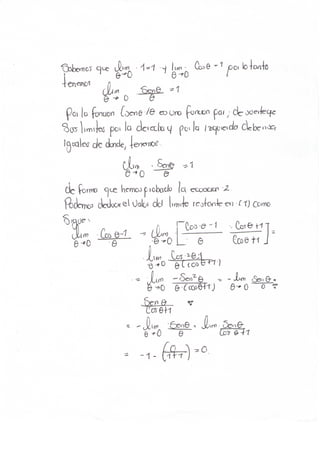 Sabemos que lim 1=1 y lim Cos θ = 1 por lo tanto
θ→0 θ→0
tenemos
lim Sen θ = 1
θ→0 θ
Por la funcion (sen θ/θ es una funcion par, de suerte que
Sus limites por la derecha y por la izquierda deben ser
Iguales de donde, tenemos:
lim . Sen θ = 1
θ→0 θ
de forma que hemos probado la ecuacion 2
Podemos deducir el valor del limite restante en (1) como
Sigue:
lim Cos θ-1 = lim [Cos θ - 1 . Cos θ+1] =
θ→0 θ θ→0 θ Cos θ+1
lim Cos ²θ-1
θ→0 θ(cos θ+1)
= lim -Sen²θ = - lim Sen θ
θ→0 θ(cos θ+1) θ→0 θ
Sen θ
Cos θ+1
= - lim Sen θ . lim Sen θ
θ→0 θ Cos θ+1
= -1 - (0/1+1) = 0.